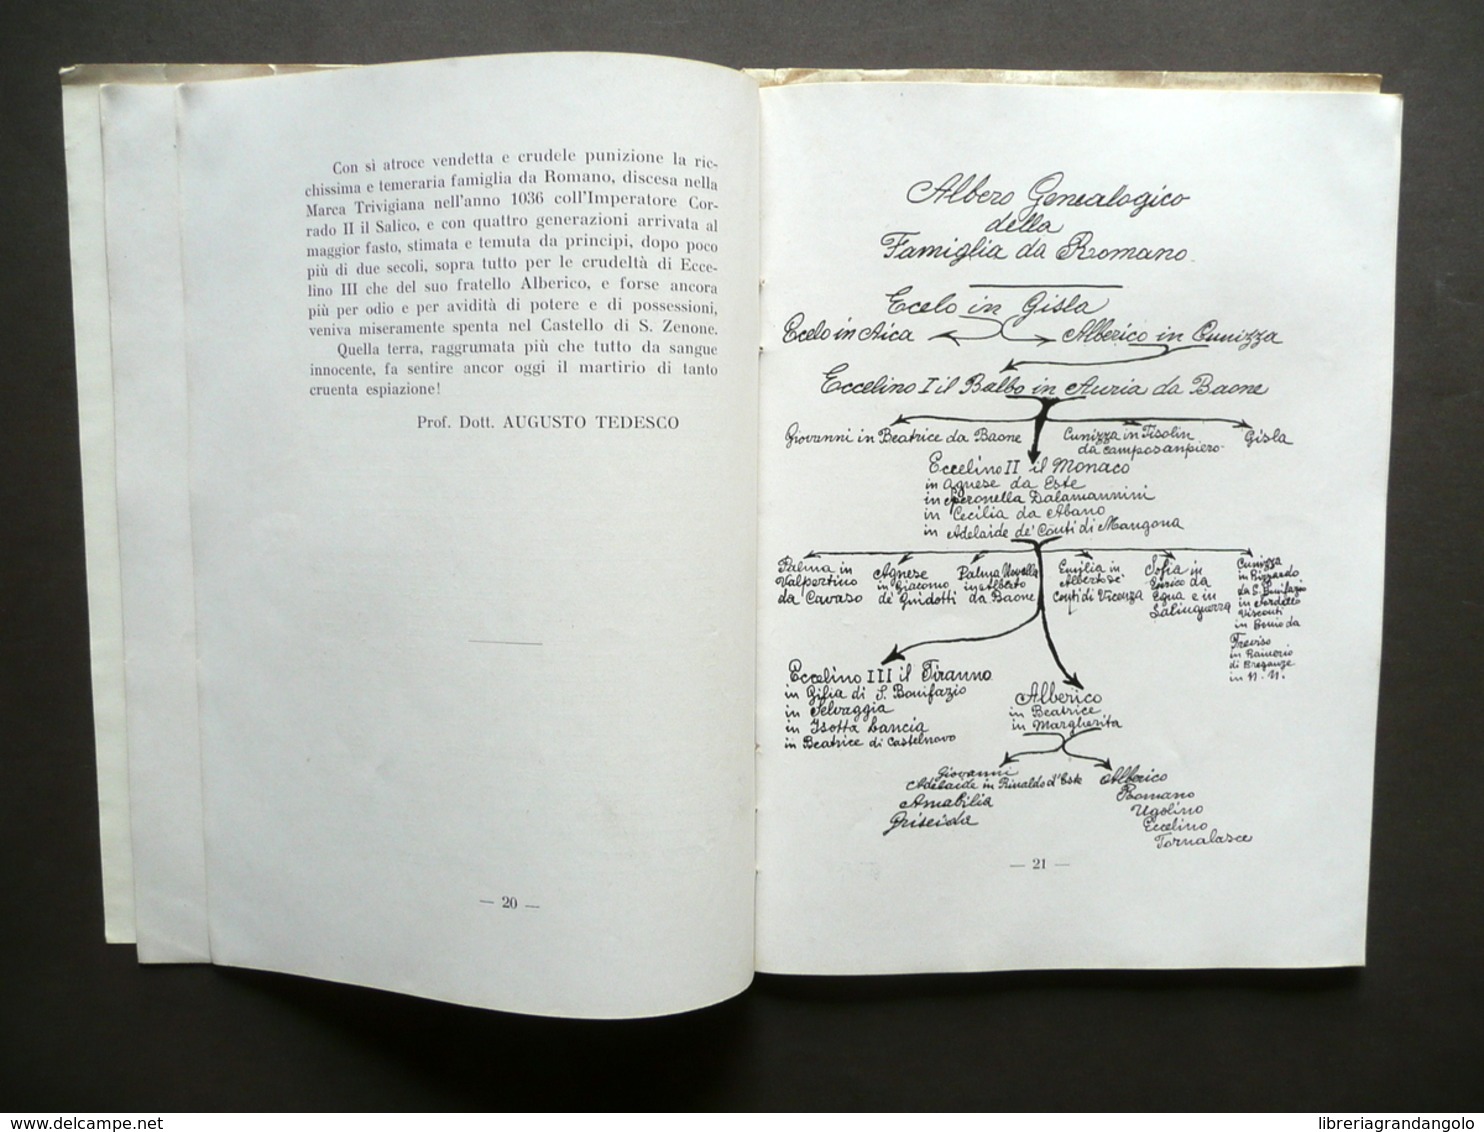 Con sì atroce vendetta e crudele punizione la ric-
chissima e temeraria famiglia da Romano, discesa nella
Marca Trivigiana nell'anno 1036 coll'Imperatore Cor-
rado II il Salico, e con quattro generazioni arrivata al
maggior fasto, stimata e temuta da principi, dopo poco
più di due secoli, sopra tutto per le crudeltà di Ecce-
lino III che del suo fratello Alberico, e forse ancora
più per odio e per avidità di potere e di possessioni,
veniva miseramente spenta nel Castello di S. Zenone.
Quella terra, raggrumata più che tutto da sangue
innocente, fa sentire ancor oggi il martirio di tanto
cruenta espiazione!
Prof. Dott. AUGUSTO TEDESCO
— 20 —
Albero Genealogico
della
Famiglia da Romano
Ecelo in Gisla
Ecelo in Aica
Alberico in Cunizza
Eccelino I il Balbo in Auria da Baone
Giovanni in Beatrice da Baone
Cunizza in Tisolin
da Camposanpiero
Gisla
Eccelino II il Monaco
in Agnese da Este
in Speronella Dalamannini
in Cecilia da Abano
in Adelaide de' Conti di Mangona
Palma in
Valpertino
da Cavaso
Agnese
in Giacomo
de' Guidotti
Palma Novella
in Alberto
da Baone
Emilia in
Alberto de'
Conti di Vicenza
Sofia in
Enrico da
Egna e in
Salinguerra
Cunizza
in Rizzardo
da S. Bonifazio
in Sordello
Visconti
in Bonio da
Treviso
in Rainerio
di Breganze
in N. N.
Eccelino III il Tiranno
in Gilia di S. Bonifazio
in Selvaggia
in Isotta Lancia
in Beatrice di Castelnovo
Alberico
in Beatrice
in Margherita
Giovanni
Adelaide in Rinaldo d'Este
Amabilia
Griseida
Alberico
Romano
Ugolino
Eccelino
Tornalasce
— 21 —
www.delcampe.net
libreriagrandangolo